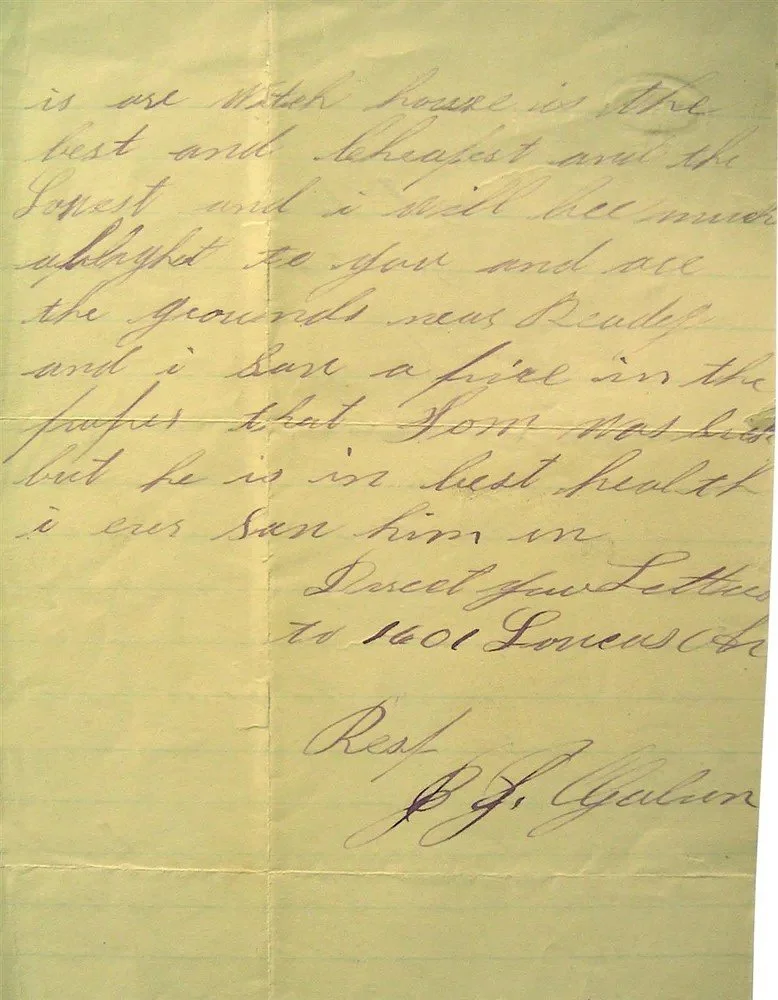 is are Witch house is the
best and Cheapest and the
and i will bee much
to you and are
the grounds near Readey
and i Saw a pice in the
paper that Tom Was Sick
but he is in best health
i ever Saw him in
Direct your Letters
to 1601 Loucas Av
Resp
J.